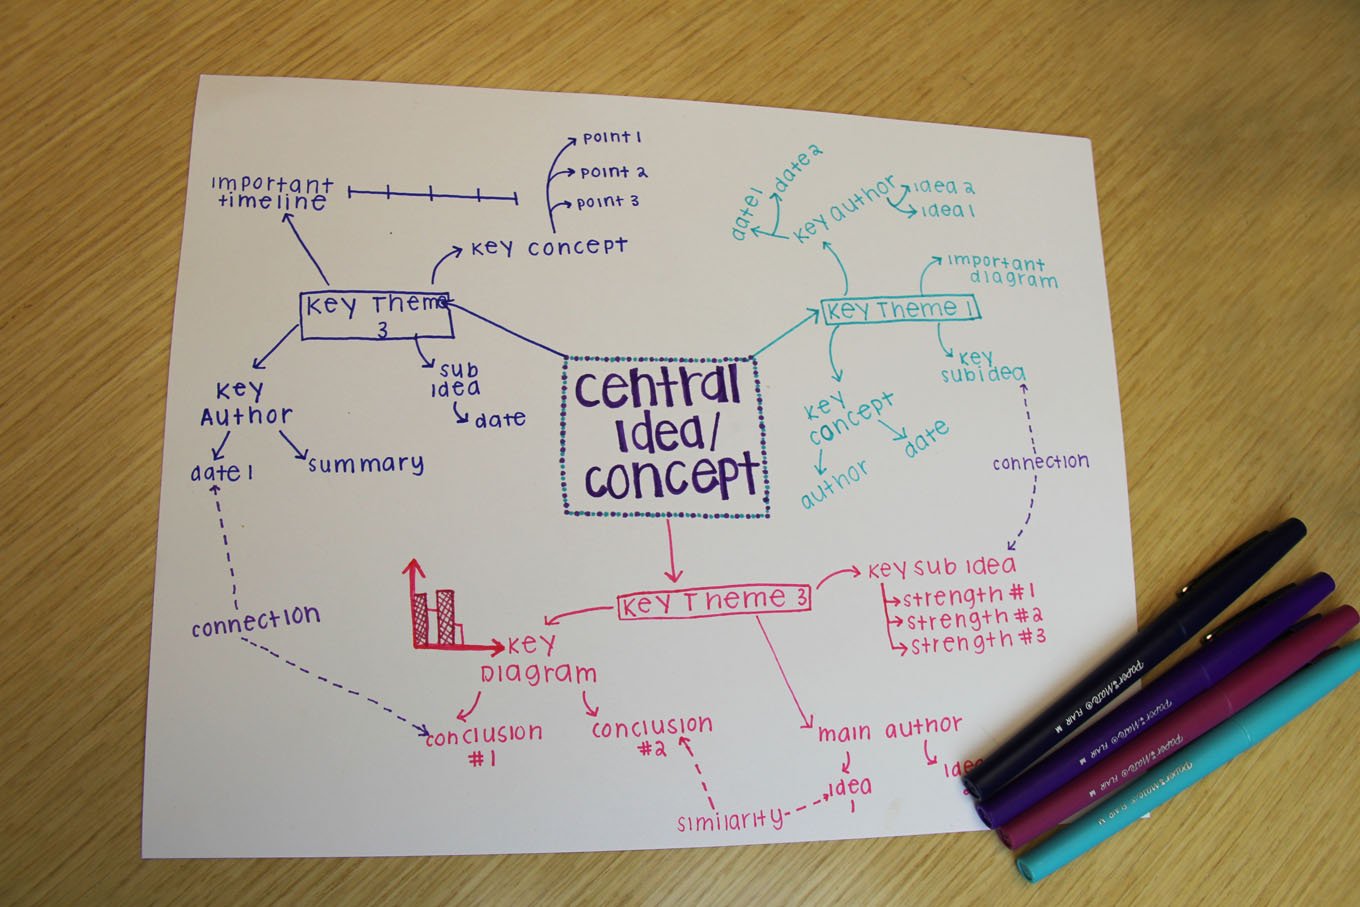 important
timeline
point 1
point 2
point 3
Key concept
Key Theme
3
Key
Author
date 1
summary
sub
idea
date
central
idea/
concept
date 1
date 2
Key author
idea 2
idea 1
important
diagram
Key Theme 1
Key
subidea
Key
concept
author
date
connection
connection
Key Theme 3
Key sub idea
strength #1
strength #2
strength #3
Key
Diagram
conclusion
#1
conclusion
#2
main author
idea
1
similarity
Paper:Mate FLAIR M
Paper:Mate FLAIR M
Paper:Mate FLAIR M
Paper:Mate FLAIR M